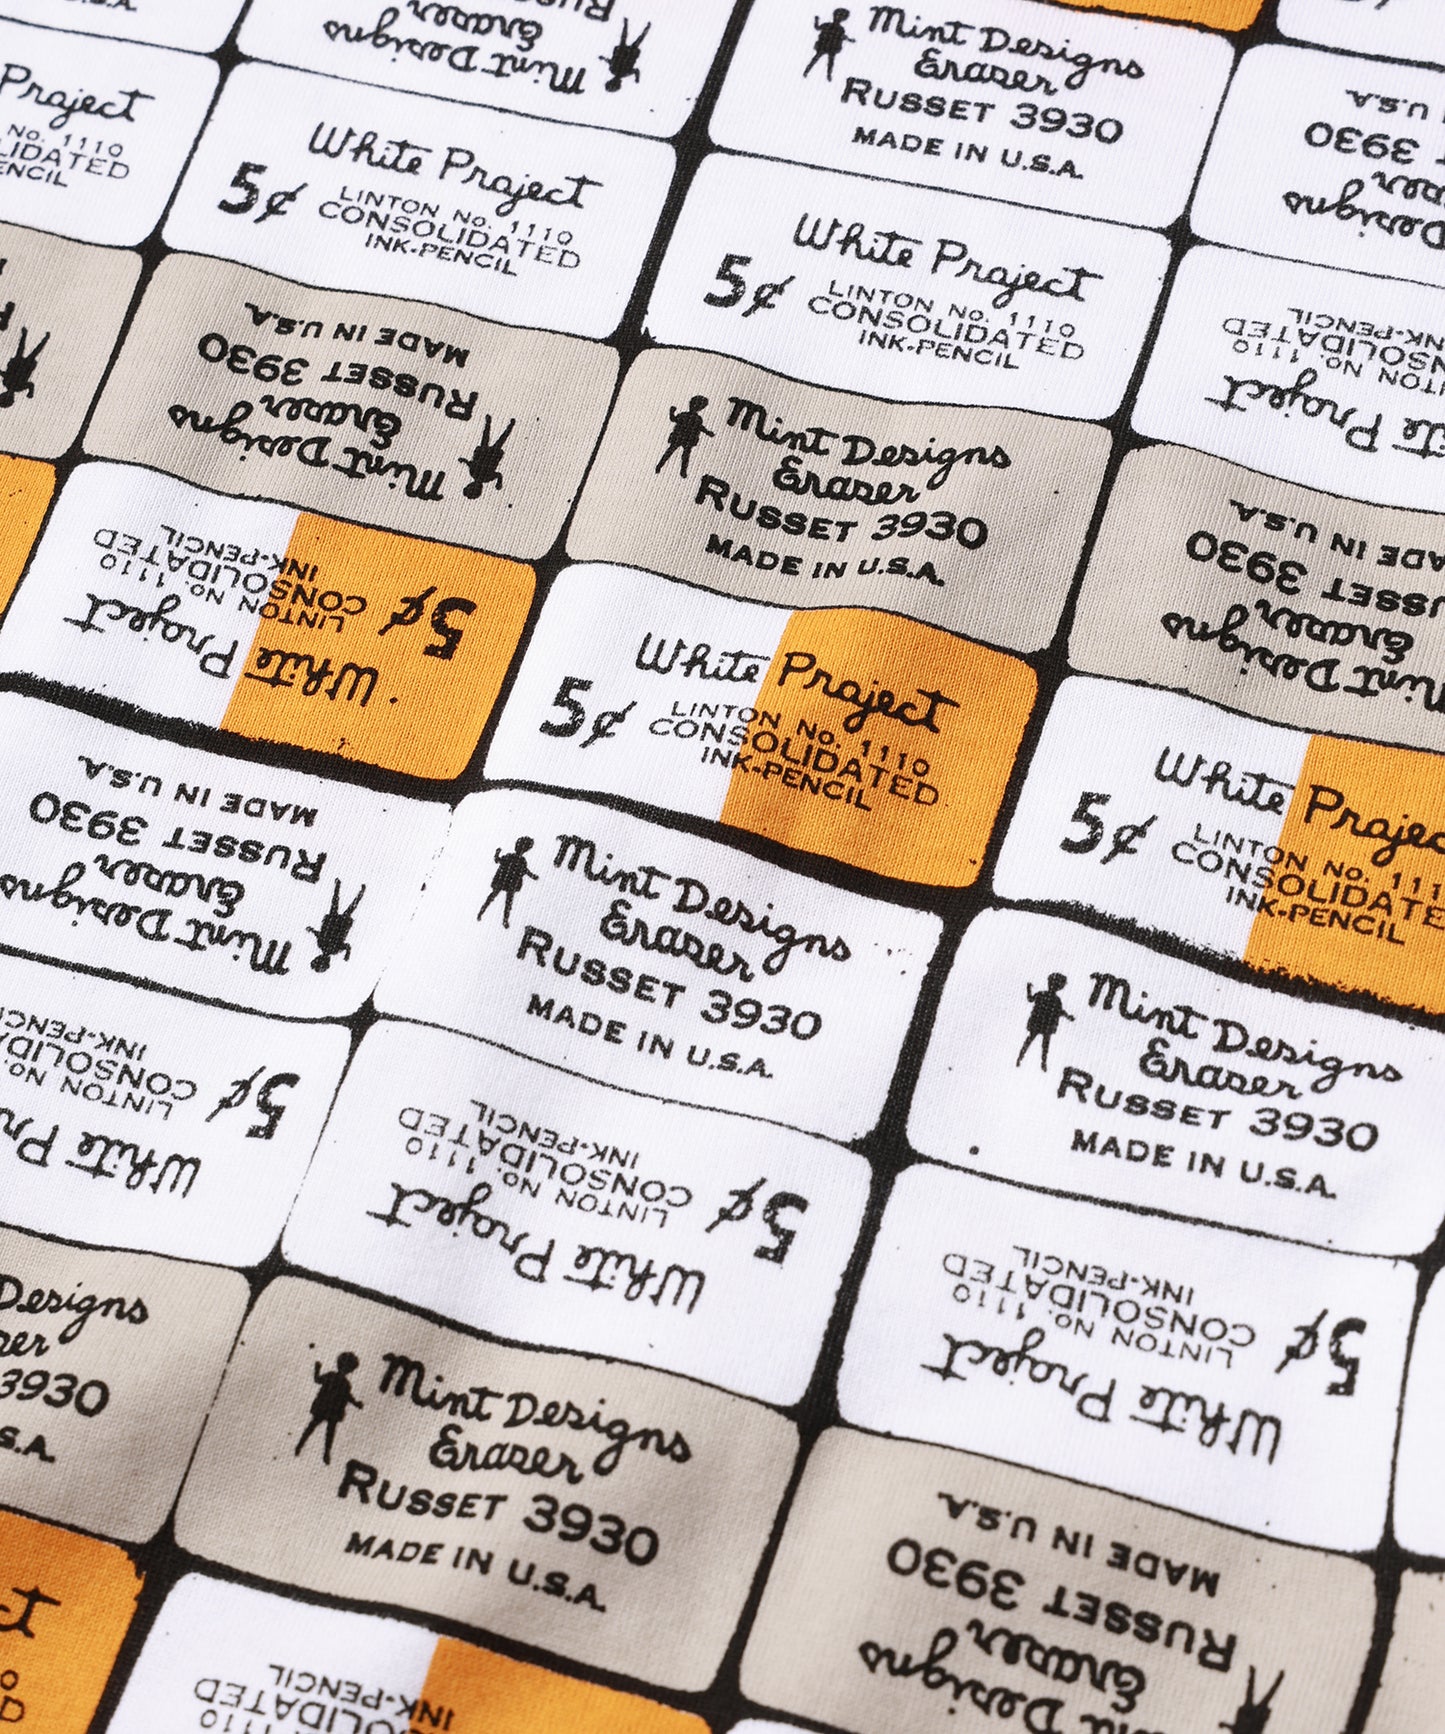 Mint Designs
Eraser
Mint Designs
Eraser
RUSSET 3930
MADE IN U.S.A.
3930
Project
No. 1110
White Project
5¢ LINTON No. 1110
CONSOLIDATED
INK-PENCIL
White Project
5¢ LINTON No. 1110
CONSOLIDATED
INK-PENCIL
Project
1110
MADE IN U.S.A.
RUSSET 3930
Eraser
Mint Designs
Mint Designs
Eraser
RUSSET 3930
MADE IN U.S.A.
MADE IN U.S.A.
3930
Eraser
Mint Designs
White Project
5¢ LINTON No. 1110
CONSOLIDATED
INK-PENCIL
White Project
5¢ LINTON No. 1110
CONSOLIDATED
INK-PENCIL
White
5¢ LINTON No.
INK-PENCIL
MADE IN U.S.A.
RUSSET 3930
Eraser
Mint Designs
Mint Designs
Eraser
RUSSET 3930
MADE IN U.S.A.
Mint Designs
Eraser
RUSSET 3930
MADE IN U.S.A.
White
5¢ LINTON No.
CONSOLIDATED
INK-PENCIL
White Project
5¢ LINTON No. 1110
CONSOLIDATED
INK-PENCIL
White Project
5¢ LINTON No. 1110
CONSOLIDATED
INK-PENCIL
Designs
3930
Mint Designs
Eraser
RUSSET 3930
MADE IN U.S.A.
MADE IN U.S.A.
RUSSET 3930
Eraser
Designs
INK-PENCIL